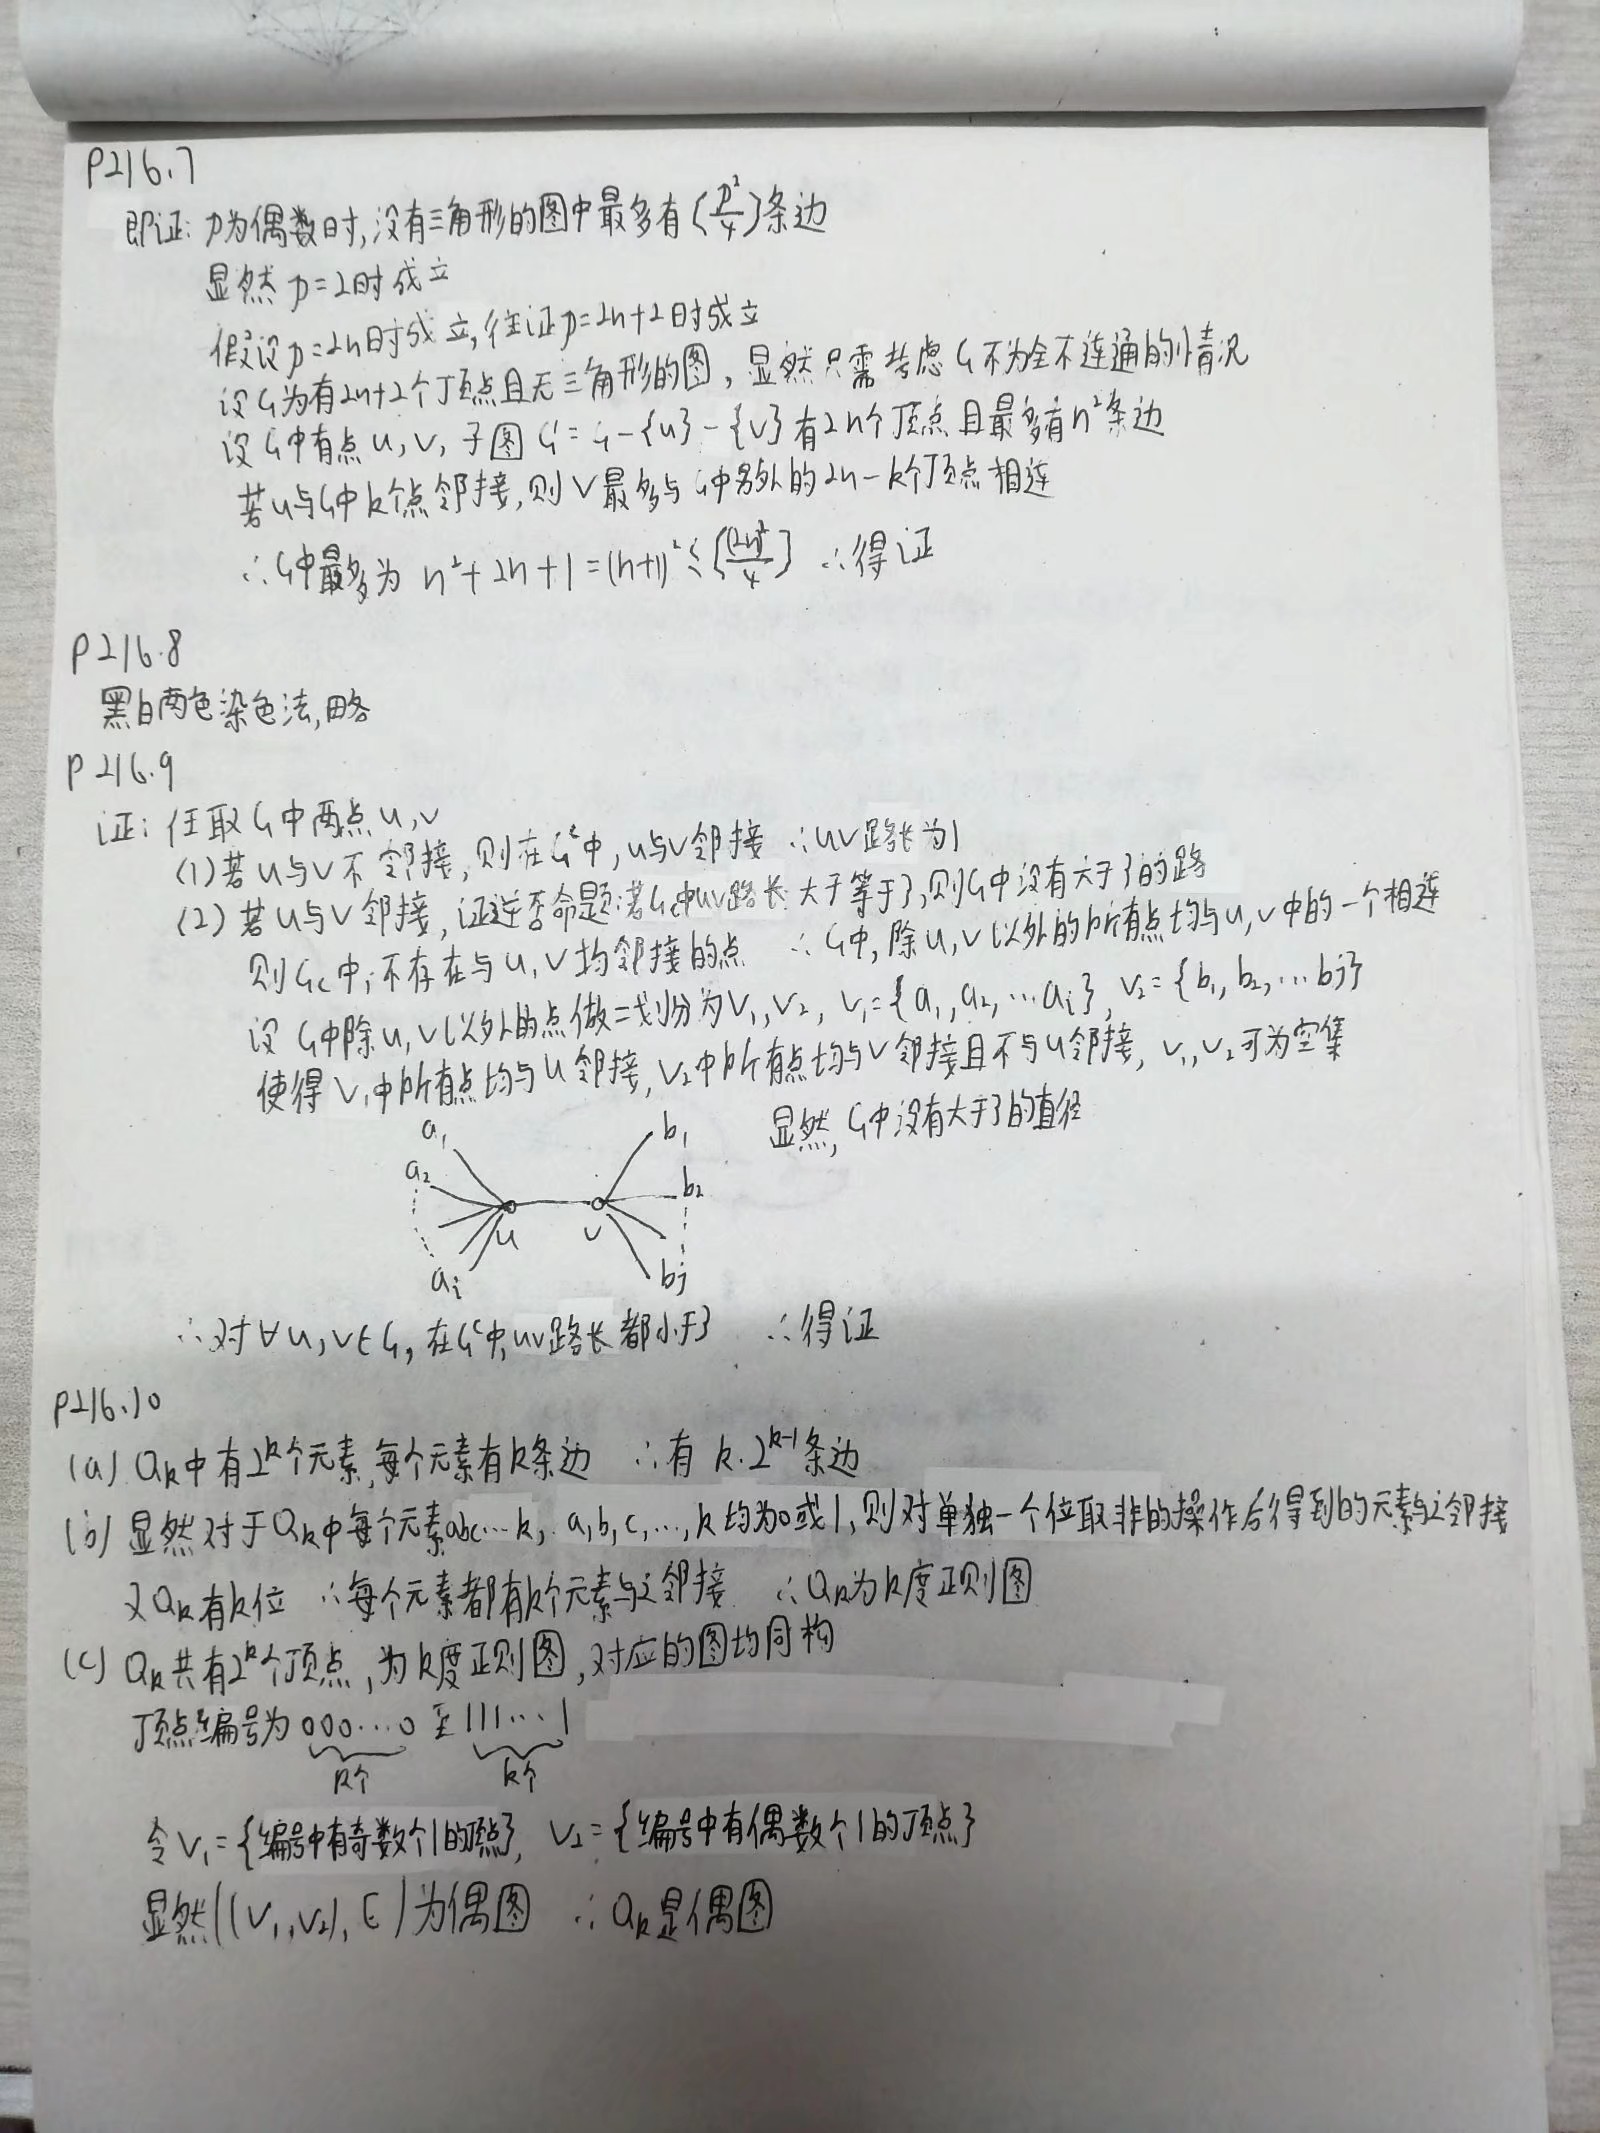 P216.7
即证: p为偶数时,没有三角形的图中最多有[p²/4]条边
显然 p=2时成立
假设p=2n时成立,往证p=2n+2时成立
设G为有2n+2个顶点且无三角形的图,显然只需考虑G不为全不连通的情况
设G中有点u,v,子图G'=G-{u}-{v}有2n个顶点且最多有n²条边
若u与G中k个点邻接,则v最多与G中另外的2n-k个顶点相连
∴G中最多为 n²+2n+1=(n+1)²≤[(2n)²/4] ∴得证
P216.8
黑白两色染色法,略
P216.9
证: 任取G中两点u,v
(1)若u与v不邻接,则在Gᶜ中,u与v邻接 ∴uv路长为1
(2)若u与v邻接,证逆否命题:若Gc中uv路长大于等于3,则G中没有大于3的路
则Gc中,不存在与u,v均邻接的点 ∴G中,除u,v以外的所有点均与u,v中的一个相连
设G中除u,v以外的点做二划分为V₁,V₂, V₁={a₁,a₂,…ai}, V₂={b₁,b₂,…bj}
使得V₁中所有点均与u邻接,V₂中所有点均与v邻接且不与u邻接, V₁,V₂可为空集
显然,G中没有大于3的直径
a₁ b₁
a₂ b₂
u v
ai bj
∴对∀u,v∈G,在Gᶜ中,uv路长都小于3 ∴得证
P216.10
(a) Qk中有2ᵏ个元素,每个元素有k条边 ∴有 k·2ᵏ⁻¹条边
(b) 显然对于Qk中每个元素abc…k, a,b,c,…,k均为0或1,则对单独一个位取非的操作后得到的元素与之邻接
又Qk有k位 ∴每个元素都有k个元素与之邻接 ∴Qk为k度正则图
(c) Qk共有2ᵏ个顶点,为k度正则图,对应的图均同构
顶点编号为000…0至111…1
k个 k个
令V₁={编号中有奇数个1的顶点}, V₂={编号中有偶数个1的顶点}
显然((V₁,V₂),E)为偶图 ∴Qk是偶图